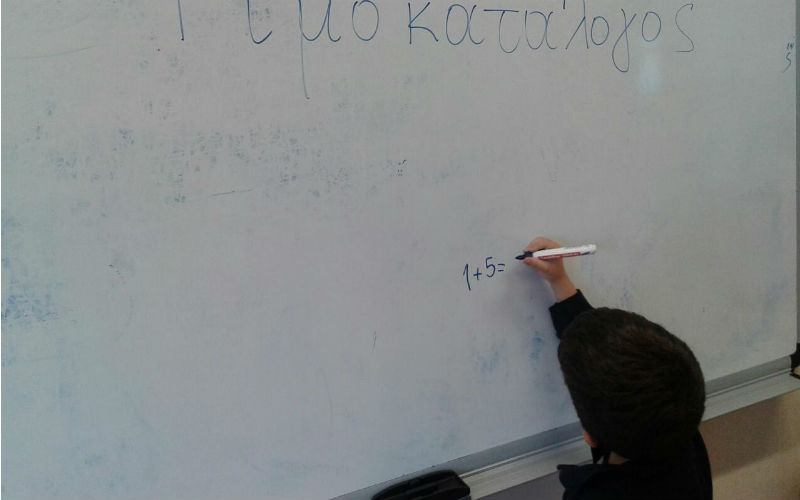 Τιμοκατάλογος
1+5=